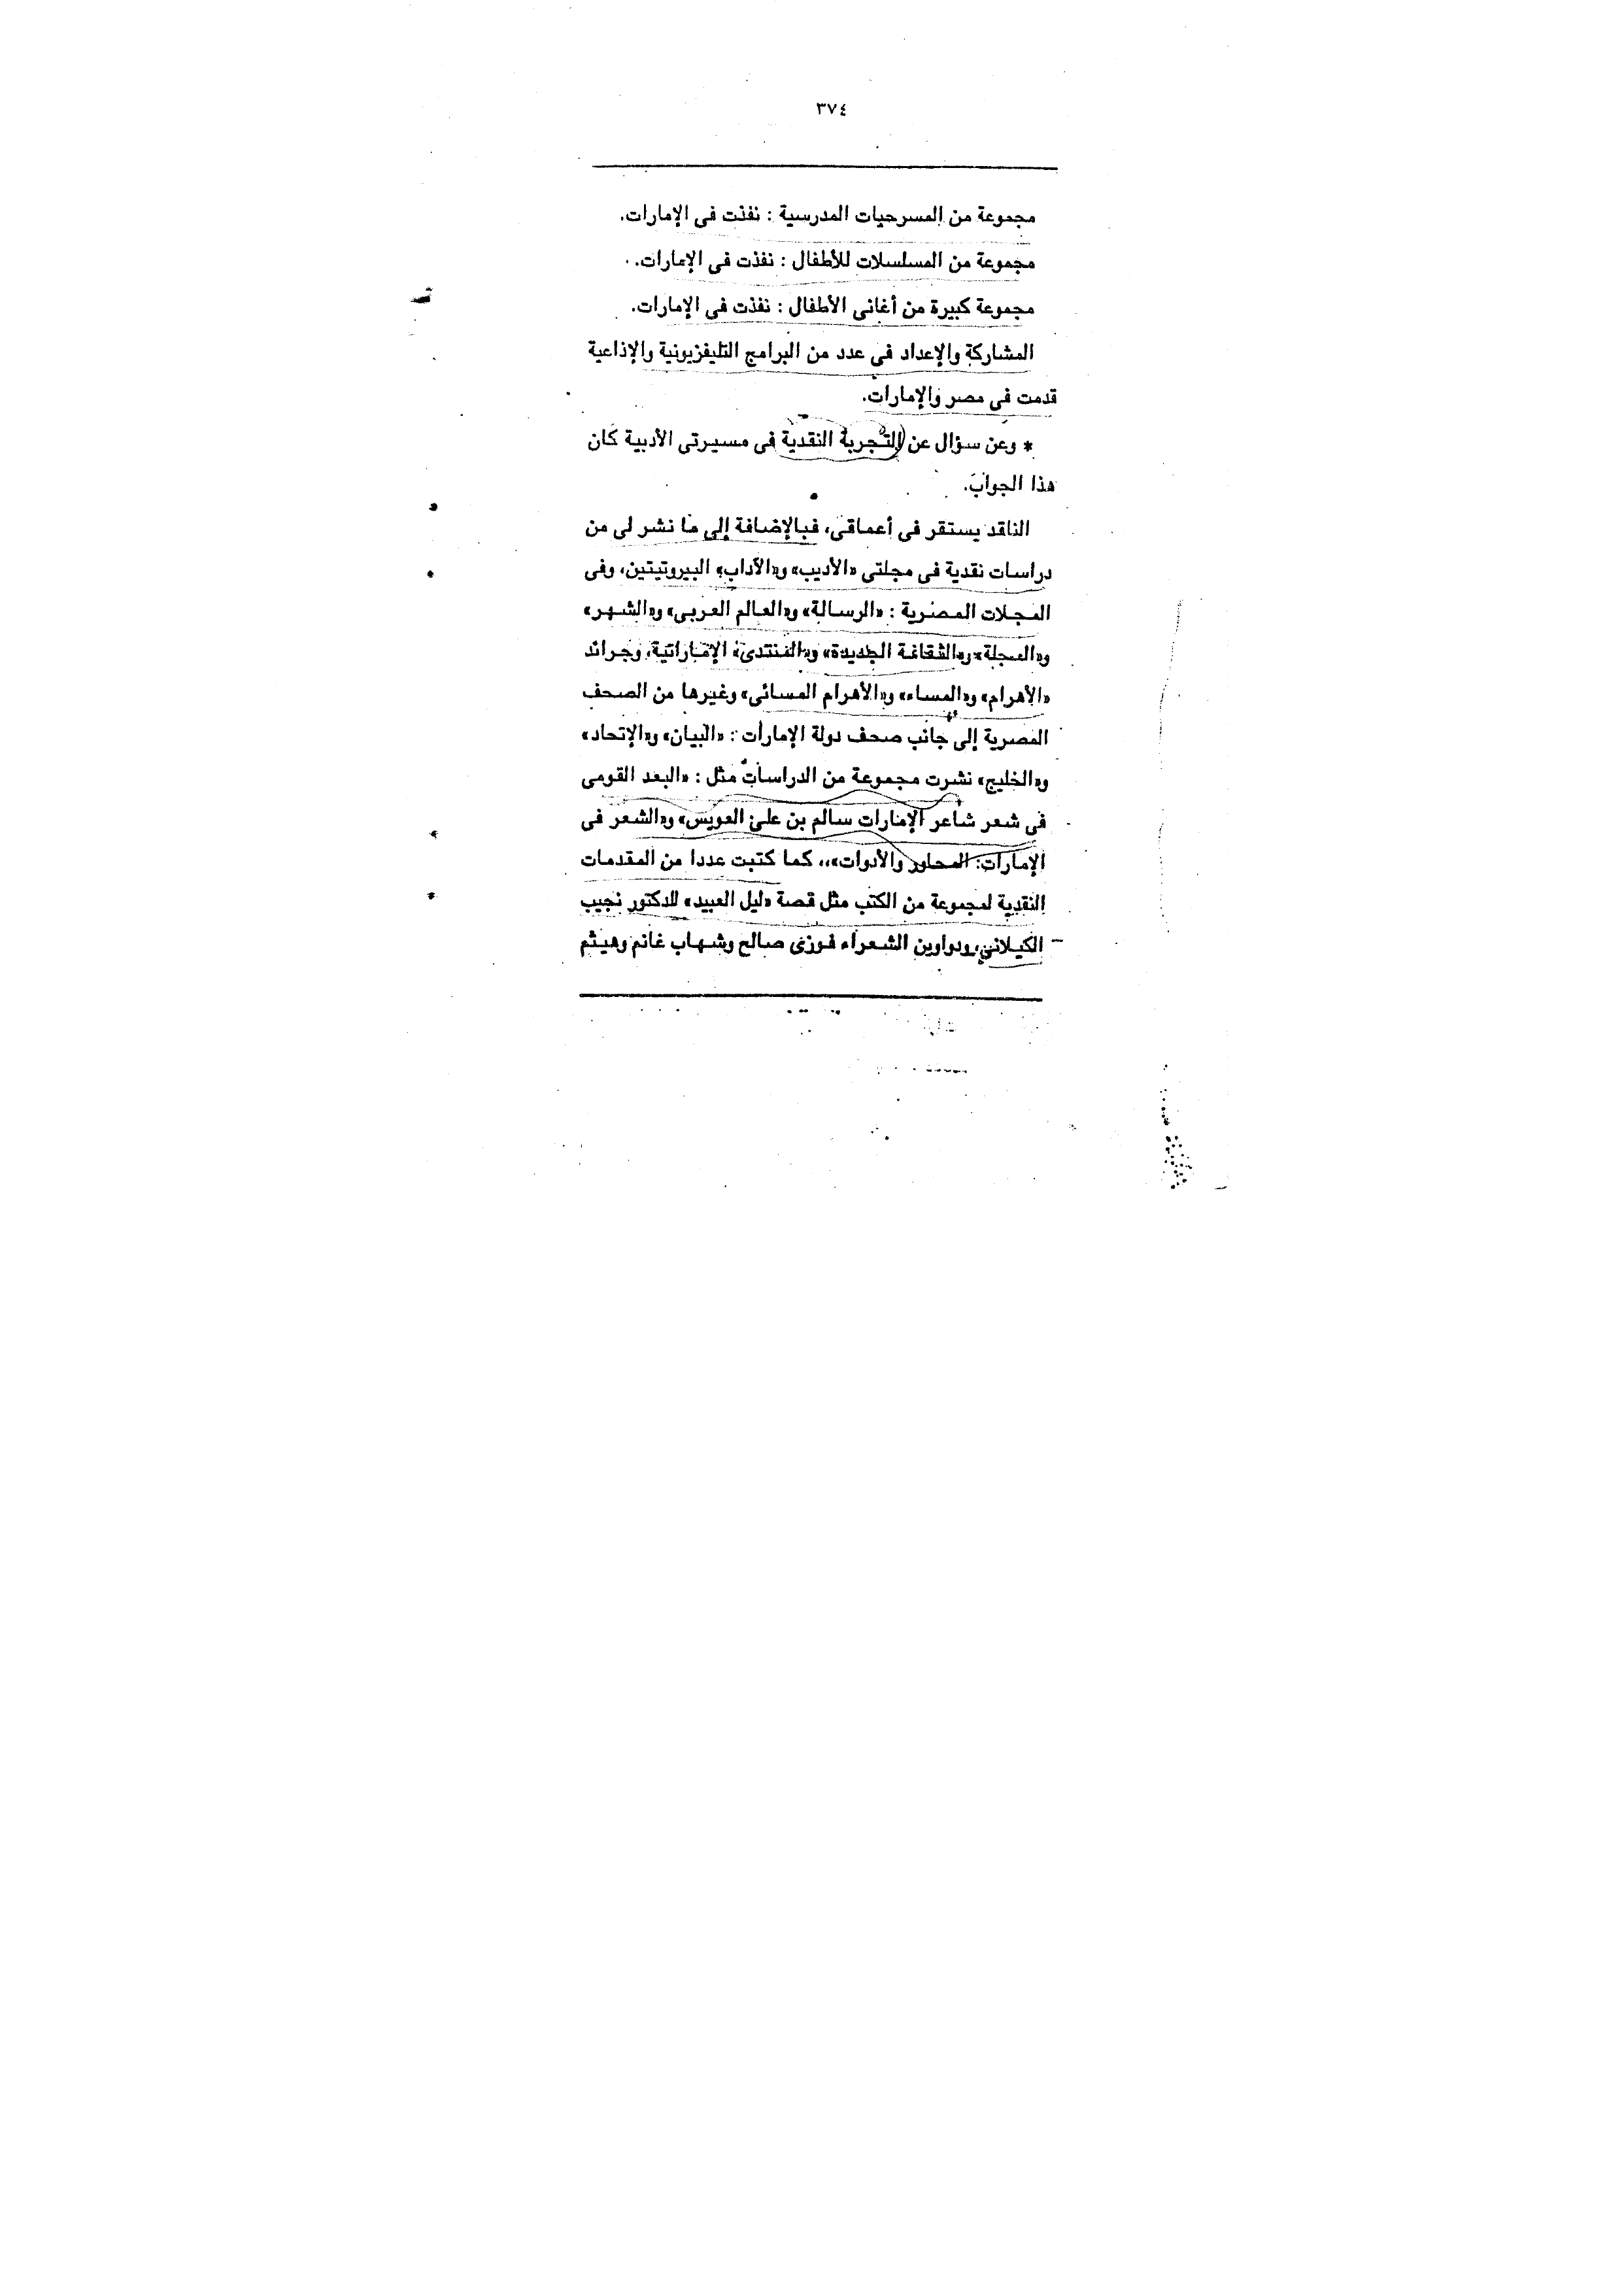 ٣٧٤
مجموعة من المسرحيات المدرسية : نفذت فى الإمارات.
مجموعة من المسلسلات للأطفال : نفذت فى الإمارات.
مجموعة كبيرة من أغانى الأطفال : نفذت فى الإمارات.
المشاركة والإعداد فى عدد من البرامج التليفزيونية والإذاعية
قدمت فى مصر والإمارات.
* وعن سؤال عن التجربة النقدية فى مسيرتى الأدبية كان
هذا الجواب.
الناقد يستقر فى أعماقى، فبالإضافة إلى ما نشر لى من
دراسات نقدية فى مجلتى «الأديب» و«الآداب» البيروتيتين، وفى
المجلات المصرية : «الرسالة» و«العالم العربى» و«الشهر»
و«المجلة» و«الثقافة الجديدة» و«المنتدى» الإماراتية، وجرائد
«الأهرام» و«المساء» و«الأهرام المسائى» وغيرها من الصحف
المصرية إلى جانب صحف دولة الإمارات : «البيان» و«الإتحاد»
و«الخليج» نشرت مجموعة من الدراسات مثل : «البعد القومى
فى شعر شاعر الإمارات سالم بن على العويس» و«الشعر فى
الإمارات: المحاور والأدوات»،، كما كتبت عددا من المقدمات
النقدية لمجموعة من الكتب مثل قصة «ليل العبيد» للدكتور نجيب
الكيلانى، ودواوين الشعراء فوزى صالح وشهاب غانم وهيثم